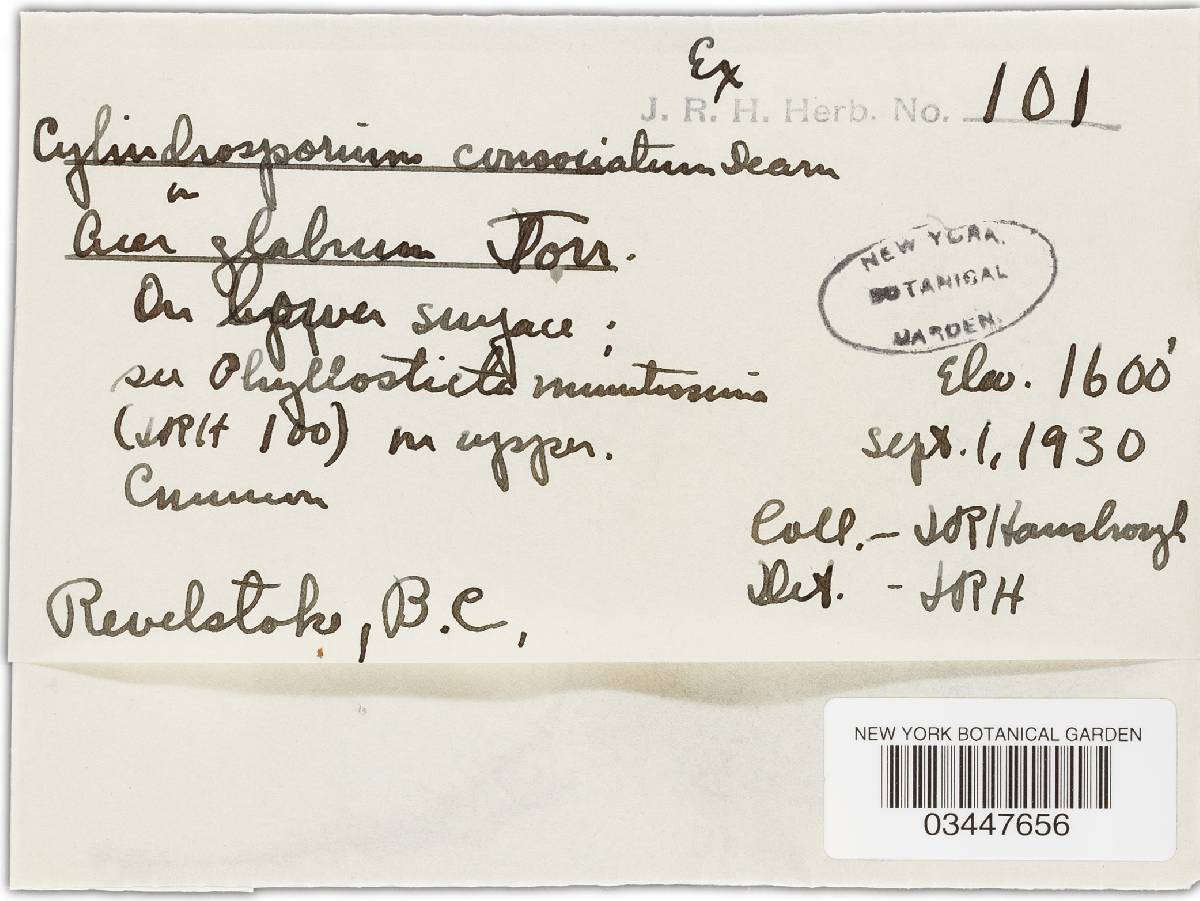 Ex
J. R. H. Herb. No. 101
Cylindrosporium consociatum Dearn
on
Acer glabrum Torr.
NEW YORK
BOTANICAL
GARDEN
On lower surface;
see Phyllosticta minutissima
Elev. 1600'
(JRH 100) on upper.
Sept. 1, 1930
Common
Coll. - JRHansbrough
Det. - JRH
Revelstoke, B.C.,
NEW YORK BOTANICAL GARDEN
03447656